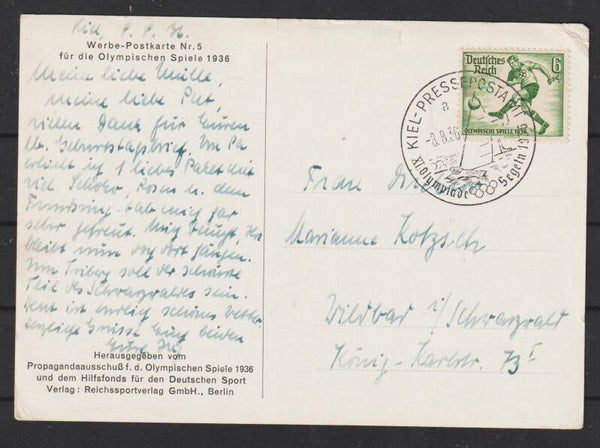 Kiel, 8. 8. 36.
Werbe-Postkarte Nr. 5
für die Olympischen Spiele 1936
Meine liebe
meine liebe Pat,
vielen Dank für Euren
lb. Geburtstagsbrief. Im Pa
1 liebes Paket mit
viel Schoko, Rosen u. dem
hab mich sehr
sehr gefreut.
bleibt nun
Um Triberg soll der schönste
Teil des Schwarzwaldes sein.
ist endlich schönes Wetter
Grüsse Euch beiden
Eure
Herausgegeben vom
Propagandaausschuß f. d. Olympischen Spiele 1936
und dem Hilfsfonds für den Deutschen Sport
Verlag: Reichssportverlag GmbH., Berlin
Deutsches
Reich
6
OLYMPISCHE SPIELE 1936
KIEL-PRESSEPOSTAMT
a
-8.8.36
XI. Olympiade Segeln 1936
Frau
Marianne Kotzsch
Wildbad i/Schwarzwald
König-Karlstr. 73